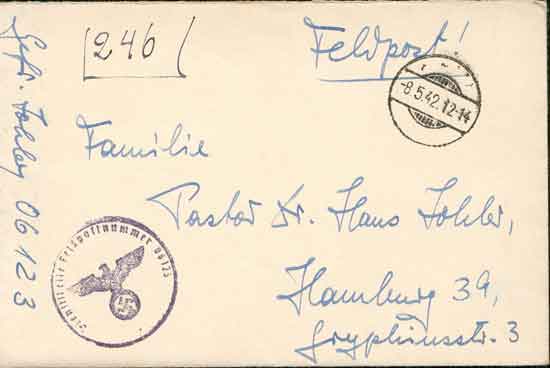 246
Feldpost!
-8.5.42.12-14
Familie
Pastor Dr. Hans Johler,
Hamburg 39,
Gryphiusstr. 3
Gefr. Johler 06123
Feldpostnummer 06123